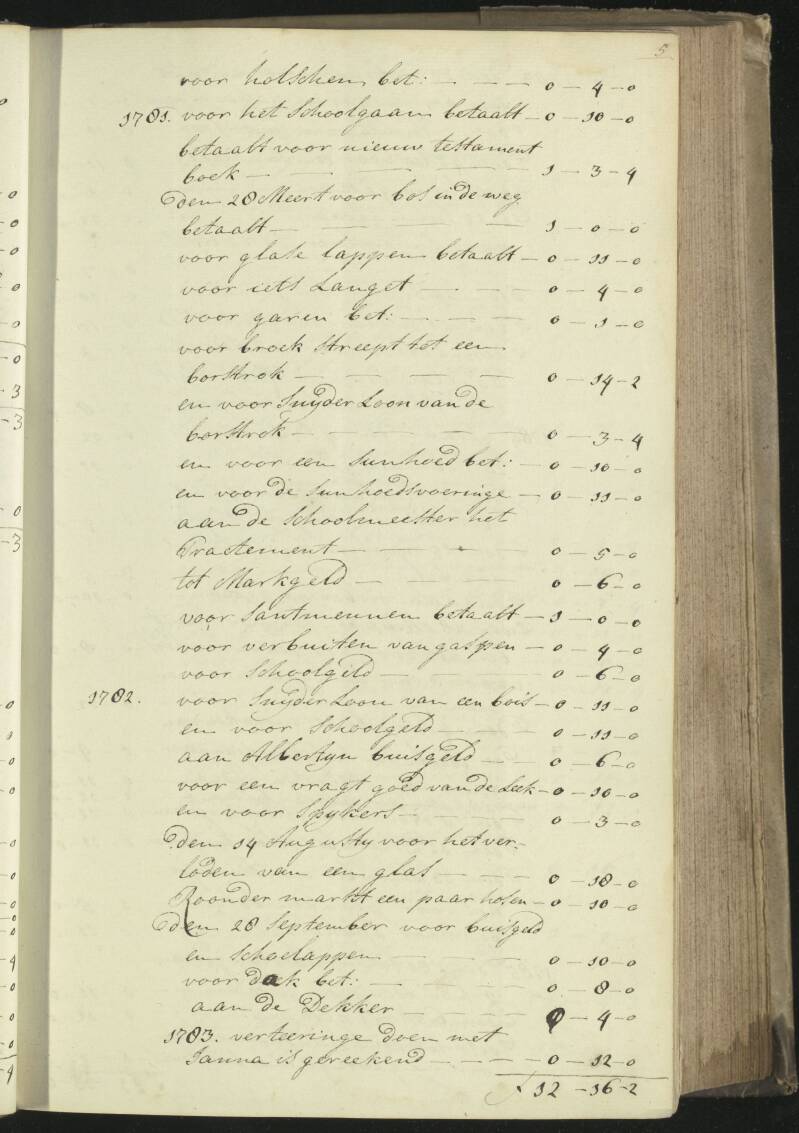 5
voor holschen bet: — — — 0 — 4 — 0
1781. voor het Schoolgaan betaalt — 0 — 10 — 0
betaalt voor nieuw testament
boek — — — — — 1 — 3 — 4
den 28 Meert voor bol in de weg
betaalt — — — — — 1 — 0 — 0
voor glase lappen betaalt — 0 — 11 — 0
voor iets Langet — — — 0 — 4 — 0
voor garen bet: — — — 0 — 1 — 0
voor broek Streept tot een
borstrok — — — — 0 — 14 — 2
en voor Snyder Loon van de
borstrok — — — — 0 — 3 — 4
en voor een Sunhoed bet: — 0 — 10 — 0
en voor de Sunhoedsvoeringe — 0 — 11 — 0
aan de Schoolmeester het
Tractement — — — — 0 — 5 — 0
tot Markgeld — — — — 0 — 6 — 0
voor Santmennen betaalt — 1 — 0 — 0
voor verbuiten van gaspen — 0 — 4 — 0
voor Schoolgeld — — — 0 — 6 — 0
1782. voor Snyder Loon van een bois — 0 — 11 — 0
en voor Schoolgeld — — — 0 — 11 — 0
aan Albertyn buisgeld — — 0 — 6 — 0
voor een vragt goed van de Leek — 0 — 10 — 0
en voor Spykers — — — 0 — 3 — 0
den 14 Augusty voor het ver-
loden van een glas — — 0 — 18 — 0
Roonder markt een paar hosen — 0 — 10 — 0
den 28 September voor buisgeld
en Schoelappen — — — 0 — 10 — 0
voor dack bet: — — — 0 — 8 — 0
aan de Dekker — — — 0 — 4 — 0
1783. verteeringe doen met
Janna is gereekend — — — 0 — 12 — 0
f 12 — 16 — 2